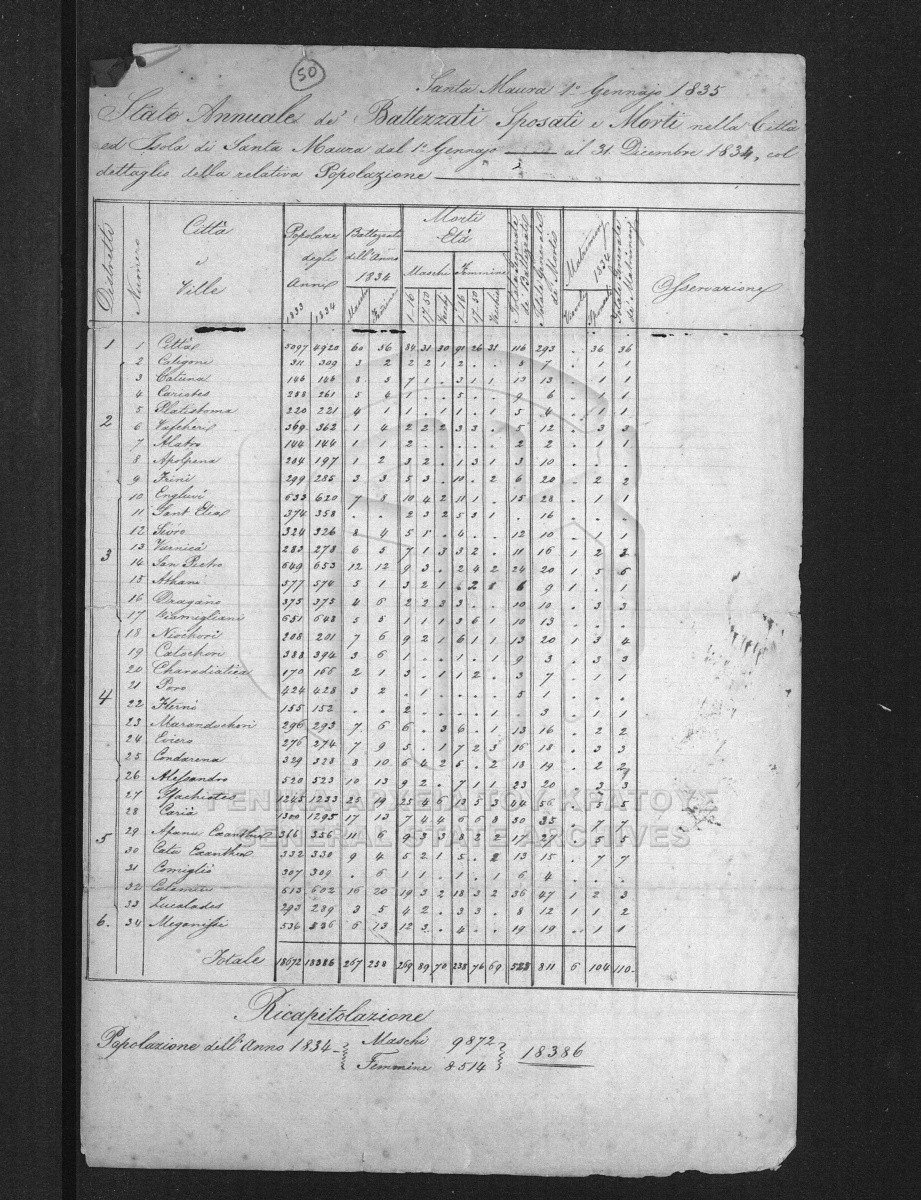 50
Santa Maura 1º Gennajo 1835
Stato Annuale de' Battezzati Sposati e Morti nella Città
ed Isola di Santa Maura dal 1º Gennajo al 31 Dicembre 1834, col
dettaglio della relativa Popolazione
Distretti Numero Città e Ville Popolaze degli Anni 1833 1834 Battezzati dell'Anno 1834 Maschi Femine Morti Età Maschi Femmine 1-16 17-50 Vecchi 1-16 17-50 Vecchi Totale Generale di Battezzati Totale Generale de' Morti Matrimonj 1834 Totale Generale di Matrimonj Osservazione
1 1 Città 5097 4920 60 56 84 31 30 91 26 31 116 293 . 36 36
2 Caligoni 311 309 3 2 2 2 1 2 . . 5 7 . 1 1
3 Catuna 146 146 8 5 7 1 . 3 1 1 13 13 . 1 1
4 Cariotes 258 261 5 4 1 . . 5 . . 9 6 . 1 1
5 Platistoma 220 221 4 1 1 . 1 1 . 1 5 4 . 1 1
2 6 Vafcheri 369 362 1 4 2 2 2 3 3 . 5 12 . 3 3
7 Alatro 144 144 1 1 2 . . . . . 2 2 . 1 1
8 Apolpena 204 197 1 2 3 2 . 1 3 1 3 10 . . .
9 Frini 299 285 3 3 5 3 . 10 . 2 6 20 . 2 2
10 Engluvi 633 620 7 8 10 4 2 11 1 . 15 28 . 1 1
11 Sant Elia 374 358 . . 2 3 2 5 3 1 . 16 . . .
12 Sivro 324 326 8 4 5 1 . 4 . . 12 10 . 1 .
3 13 Vurnicà 283 278 6 5 7 1 3 3 2 . 11 16 1 2 3
14 San Pietro 649 653 12 12 9 3 . 2 4 2 24 20 1 5 6
15 Athani 577 574 5 1 3 2 1 . 2 8 6 9 1 . 1
16 Dragano 375 375 4 6 2 2 3 3 . . 10 10 . 3 3
17 651 643 5 5 1 1 1 3 6 1 10 13 . . .
18 Niochori 208 201 7 6 9 2 1 6 1 1 13 20 1 3 4
19 Catochori 388 394 3 6 1 . . 1 . 1 9 3 . 3 3
20 Charadiatica 170 166 2 1 3 . 1 1 2 . 3 7 . 1 1
4 21 Poro 424 428 3 2 . 1 . . . . 5 1 . . .
22 Fterno 155 152 . . 2 . . . . 1 . 3 . 1 1
23 Marandochori 296 293 7 6 6 . 3 6 . 1 13 16 . 2 2
24 Eviero 276 274 7 9 5 . 1 7 2 3 16 18 . 3 3
25 Condarena 329 328 8 10 6 4 2 5 . 2 18 19 . 2 2
26 Alessandro 520 523 10 13 9 2 . 7 1 1 23 20 . 3 3
27 Sfachiotes 1245 1233 25 19 25 4 6 13 5 3 44 56 . 5 5
28 Carià 1300 1295 17 13 7 4 4 6 6 8 30 35 . 7 7
5 29 Apanu Exanthia 366 356 11 6 9 3 3 8 2 2 17 27 . 5 5
30 Cato Exanthia 332 330 9 4 5 2 1 5 . 2 13 15 . 7 7
31 Comiglio 307 309 . 6 1 1 . 1 . 1 6 4 . . .
32 Calamiu 613 602 16 20 19 3 2 18 3 2 36 47 1 2 3
33 Zucalades 293 289 3 5 4 2 . 3 3 . 8 12 1 1 2
6. 34 Meganissi 536 536 6 13 12 3 . 4 . . 19 19 . 1 1
Totale 18672 18386 267 258 269 89 70 238 76 69 528 811 6 104 110
ΓΕΝΙΚΑ ΑΡΧΕΙΑ ΤΟΥ ΚΡΑΤΟΥΣ
GENERAL STATE ARCHIVES
Ricapitolazione
Popolazione dell'Anno 1834 Maschi 9872
Femmine 8514
18386